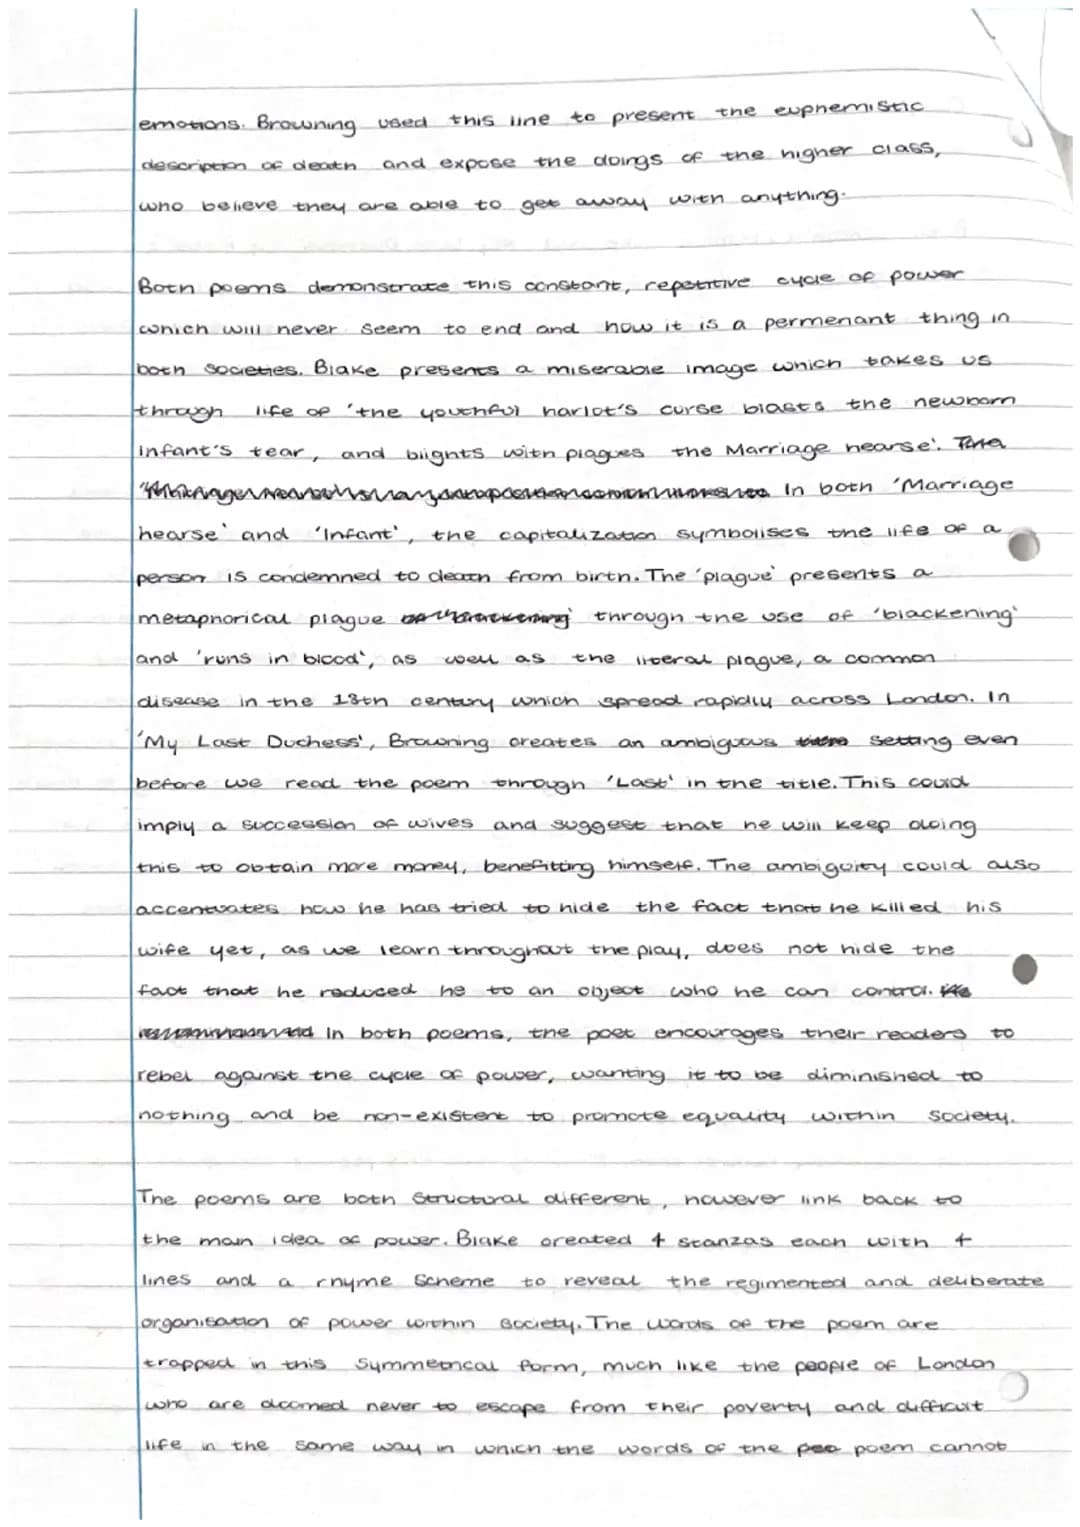 emotions. Browning used this line to present the euphemistic
description of death and expose the doings of the higher class,
who believe they are able to get away with anything.
Both poems demonstrate this constant, repetitive cycle of power
which will never seem to end and how it is a permenant thing in
both societies. Blake presents a miserable image which takes us
through life of 'the youthful harlot's curse blasts the newborn
infant's tear, and blights with plagues the Marriage hearse'.
In both 'Marriage
hearse' and 'Infant', the capitalization symbolises the life of a
person is condemned to death from birth. The 'plague' presents a
metaphorical plague through the use of 'blackening'
and 'runs in blood', as well as the literal plague, a common
disease in the 18th century which spread rapidly across London. In
'My Last Duchess', Browning creates an ambiguous setting even
before we read the poem through 'Last' in the title. This could
imply a succession of wives and suggest that he will keep doing
this to obtain more money, benefitting himself. The ambiguity could also
accentuates how he has tried to hide the fact that he killed his
wife yet, as we learn throughout the play, does not hide the
fact that he reduced he to an object who he can control.
In both poems, the poet encourages their readers to
rebel against the cycle of power, wanting it to be diminished to
nothing and be non-existent to promote equality within society.
The poems are both structural different, however link back to
the main idea of power. Blake created 4 stanzas each with 4
lines and a rhyme scheme to reveal the regimented and deliberate
organisation of power within society. The words of the poem are
trapped in this symmetrical form, much like the people of London
who are doomed never to escape from their poverty and difficult
life in the same way in which the words of the poem cannot